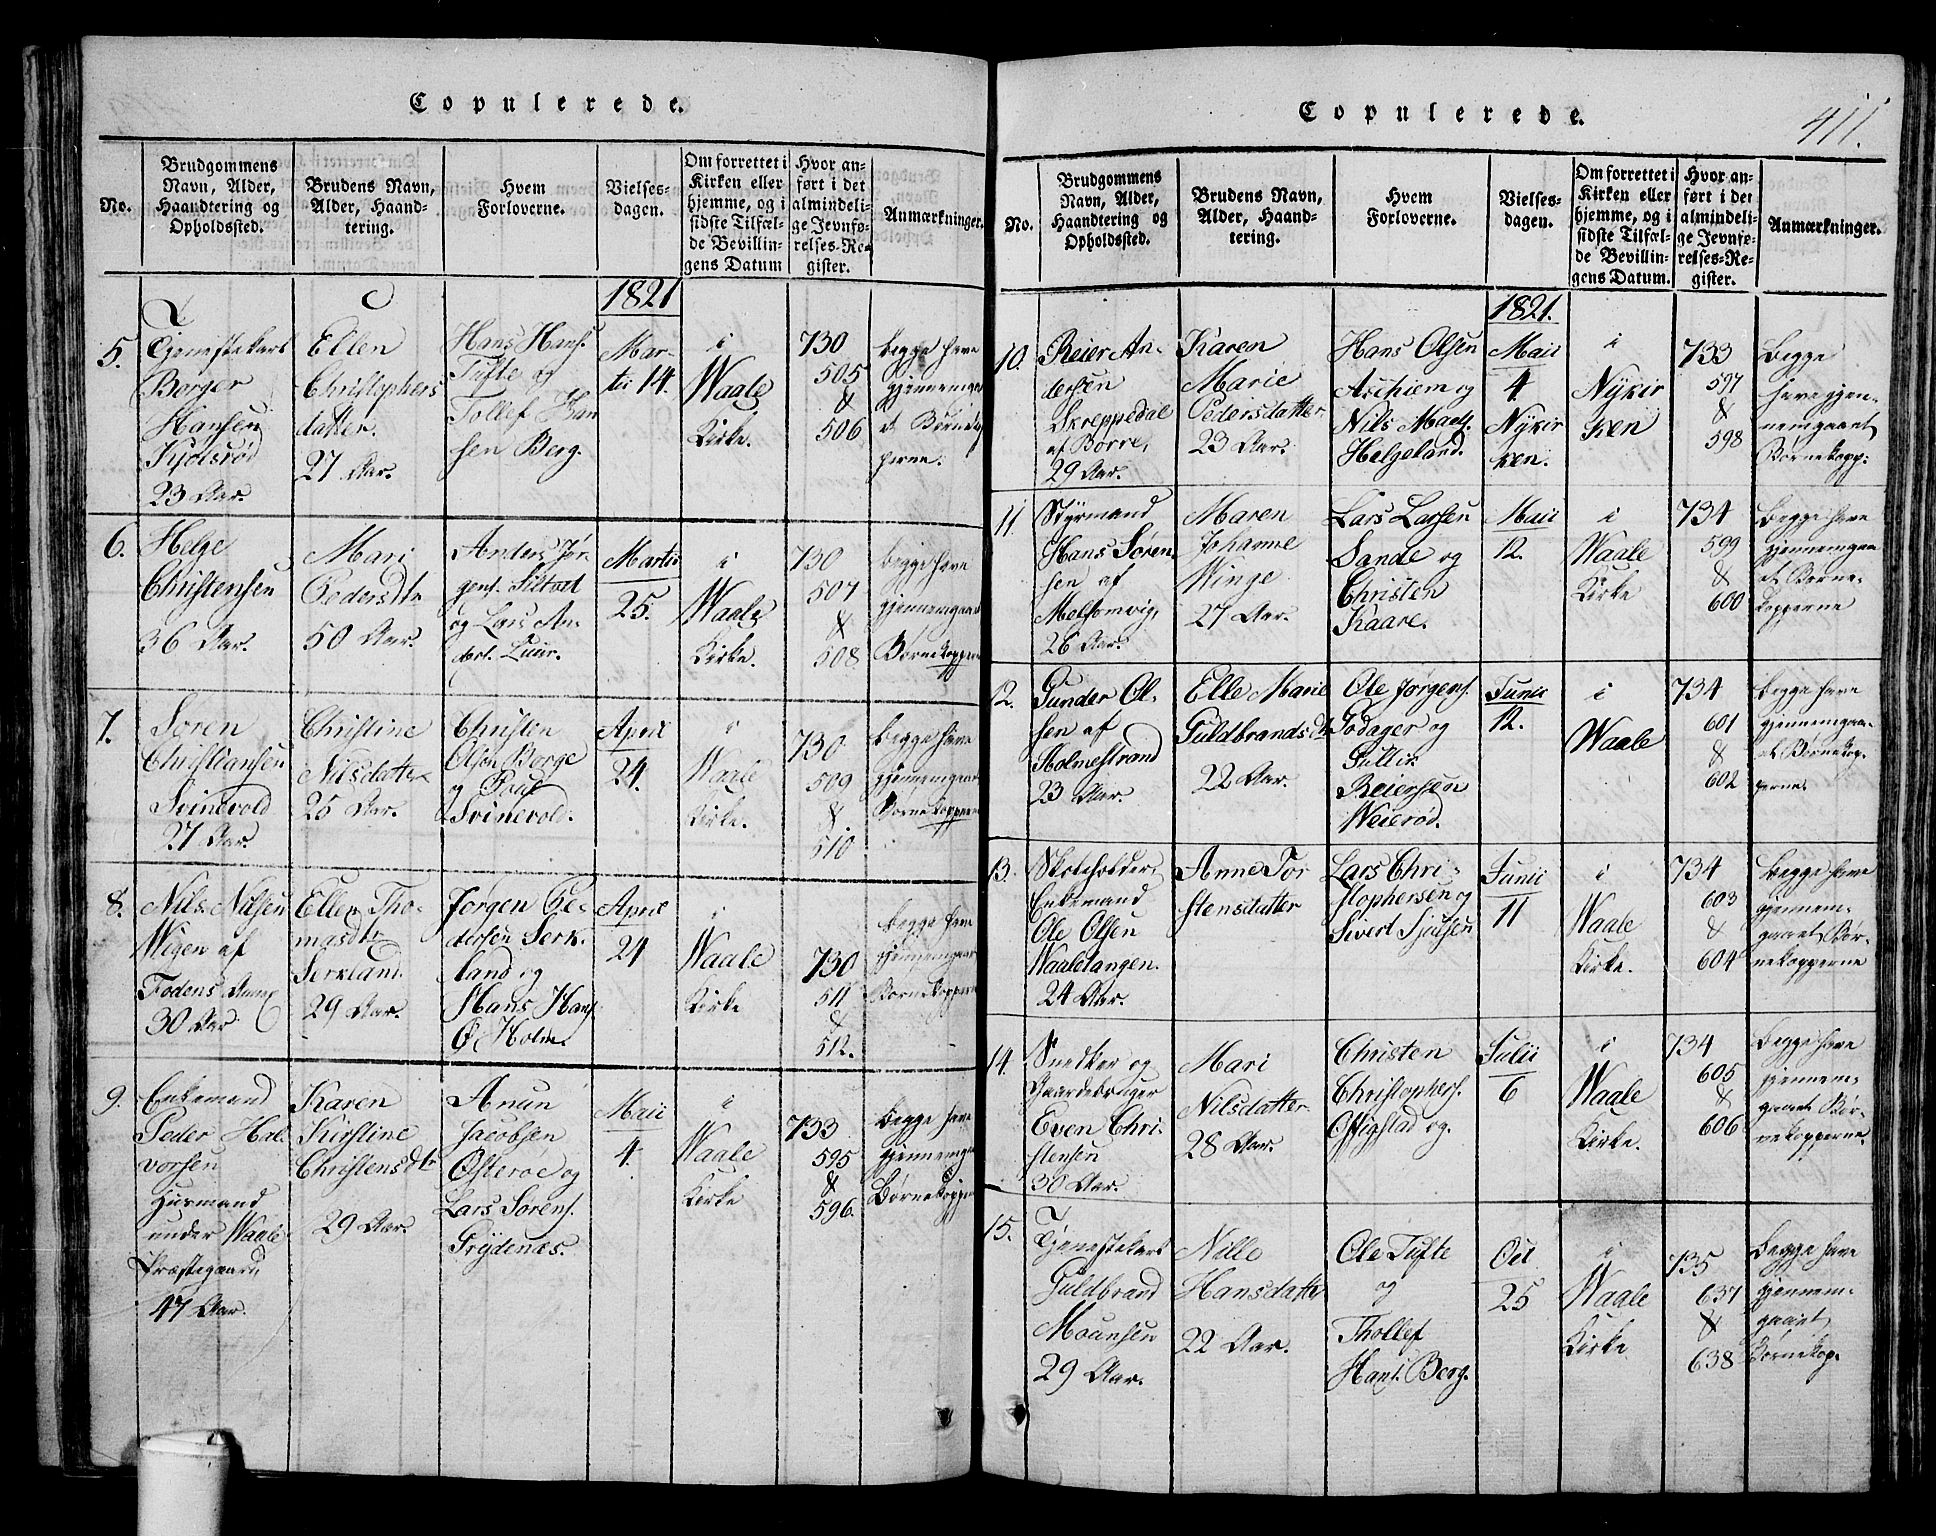 Copulerede.
No.
Brudgommens
Navn, Alder,
Haandtering og
Opholdssted.
Brudens Navn,
Alder, Haand-
tering.
Hvem
Forloverne.
Vielses-
dagen.
Om forrettet i
Kirken eller
hjemme, og i
sidste Tilfæl-
de Bevillin-
gens Datum
Hvor an-
ført i det
almindeli-
ge Jevnfø-
relses-Re-
gister.
Anmærkninger.
1821
5.
Tjenestekarl
Borger
Hansen
23 Aar.
Ellen
Christophers
datter.
27 Aar.
Hans Hans.
Tufte og
Tollef Han
sen Berg.
Mar-
tii 14.
i
Waale
Kirke.
730
505
&
506
begge have
gjennemgaa
et Børneko
perne.
6.
Helge
Christensen
36 Aar.
Mari
Pedersdtr
50 Aar.
Anders Jør
gens. Siltvet
og Lars An-
ders. Luur.
Martii
25.
i
Waale
Kirke.
730
507
&
508
begge have
gjennemgaaet
Børnekopperne
7.
Søren
Christiansen
Svinevold
27 Aar.
Christine
Nilsdatter
25 Aar.
Christen
Olsen Borge
og Poul
Svinevold.
April
24.
i
Waale
Kirke.
730
509
&
510
begge have
gjennemgaaet
Børnekopperne
8.
Nils Nilsen
Wigen af
30 Aar
Ellen Tho-
masdtr
Serkland
29 Aar.
Jørgen Pe-
dersen Serk-
land og
Hans Hans
Ø. Holm.
April
24
i
Waale
Kirke
730
511
&
512.
begge have
gjennemgaaet
Børnekopperne
9.
Enkemand
Peder Hal-
vorsen
Husmand
under Waale
Præstegaard,
47 Aar.
Karen
Kirstine
Christensdtr
29 Aar.
Anun
Jacobsen
Østerøe og
Lars Sørens.
Frydenæs.
Maii
4.
i
Waale
Kirke
733
595
&
596.
begge have
gjennemgaaet
Børnekopperne
Copulerede.
411.
No.
Brudgommens
Navn, Alder,
Haandtering og
Opholdssted.
Brudens Navn,
Alder, Haand-
tering.
Hvem
Forloverne.
Vielses-
dagen.
Om forrettet i
Kirken eller
hjemme, og i
sidste Tilfæl-
de Bevillin-
gens Datum.
Hvor an-
ført i det
almindeli-
ge Jevnfø-
relses-Re-
gister.
Anmærkninger.
1821.
10.
Reier An-
dersen
Skreppedal
af Borre,
29 Aar.
Karen
Marie
Pedersdatter
23 Aar.
Hans Olsen
Aschiem og
Nils Mads.
Helgeland.
Maii
4.
Nykir
ken.
i
Nykir
ken
733
597
&
598
begge
have gjen-
nemgaaet
Børnekopp:
11.
Styrmand
Hans Søren-
sen af
Melsomvig,
26 Aar.
Maren
Johanne
Winge
27 Aar.
Lars Larsen
Sande og
Christen
Kaare.
Maii
12.
i
Waale
Kirke
734
599
&
600
begge have
gjennemgaa
et Børne-
kopperne
12.
Gunder Ol-
sen af
Holmestrand
23 Aar.
Elle Marie
Guldbrandsdtr
22 Aar.
Ole Jørgens.
Sodager og
Gullik
Reiersen
Weierød.
Junii
12.
i
Waale
734
601
&
602
begge have
gjennemgaa-
et Børnekop-
perne.
13.
Skoleholder,
Enkemand
Ole Olsen
Waaletangen.
24 Aar.
Anne Tor
stensdatter
Lars Chri-
stophersen og
Sivert Sjulsen
Junii
11
i
Waale
Kirke.
734
603
&
604
begge have
gjennem-
gaaet Bør-
nekopperne
14.
Snedker og
Gaardebruger
Even Chri-
stensen
30 Aar.
Mari
Nilsdatter
28 Aar.
Christen
Christophers.
Oftigstad og.
Julii
6
i
Waale
Kirke.
734
605
&
606
begge have
gjennem-
gaaet Bør-
nekopperne.
15.
Tjenestekarl
Guldbrand
Mounsen
29 Aar.
Nille
Hansdatter
22 Aar.
Ole Tufte
og
Thollef
Hans. Berg.
Oct
25
i
Waale
Kirke
735
637
&
638
begge have
gjennem-
gaaet
Børnekop-